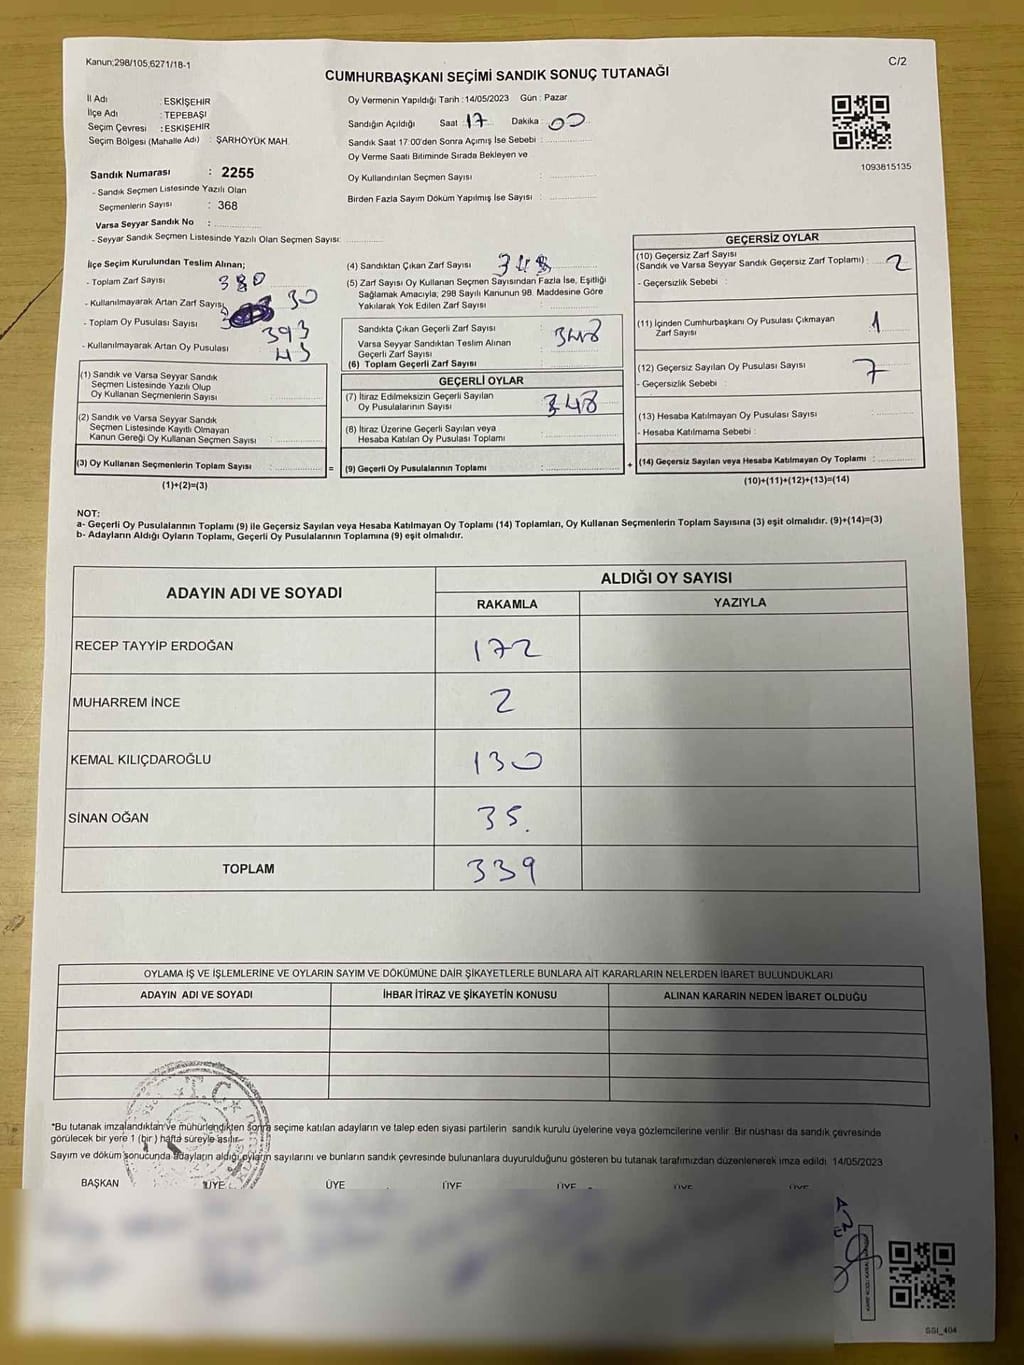 Kanun;298/105,6271/18-1
C/2
CUMHURBAŞKANI SEÇİMİ SANDIK SONUÇ TUTANAĞI
İl Adı : ESKİŞEHİR
İlçe Adı : TEPEBAŞI
Seçim Çevresi : ESKİŞEHİR
Seçim Bölgesi (Mahalle Adı) : ŞARHÖYÜK MAH.
Sandık Numarası : 2255
- Sandık Seçmen Listesinde Yazılı Olan
Seçmenlerin Sayısı : 368
Varsa Seyyar Sandık No :
- Seyyar Sandık Seçmen Listesinde Yazılı Olan Seçmen Sayısı:
Oy Vermenin Yapıldığı Tarih : 14/05/2023 Gün : Pazar
Sandığın Açıldığı Saat 17 Dakika : 00
Sandık Saat 17:00'den Sonra Açımış İse Sebebi :
Oy Verme Saati Bitiminde Sırada Bekleyen ve
Oy Kullandırılan Seçmen Sayısı :
Birden Fazla Sayım Döküm Yapılmış İse Sayısı :
1093815135
İlçe Seçim Kurulundan Teslim Alınan;
- Toplam Zarf Sayısı : 380
- Kullanılmayarak Artan Zarf Sayısı 30
- Toplam Oy Pusulası Sayısı : 393
- Kullanılmayarak Artan Oy Pusulası 45
(1) Sandık ve Varsa Seyyar Sandık
Seçmen Listesinde Yazılı Olup
Oy Kullanan Seçmenlerin Sayısı :
(2) Sandık ve Varsa Seyyar Sandık
Seçmen Listesinde Kayıtlı Olmayan
Kanun Gereği Oy Kullanan Seçmen Sayısı :
(3) Oy Kullanan Seçmenlerin Toplam Sayısı :
(1)+(2)=(3)
(4) Sandıktan Çıkan Zarf Sayısı : 348
(5) Zarf Sayısı Oy Kullanan Seçmen Sayısından Fazla İse, Eşitliği
Sağlamak Amacıyla; 298 Sayılı Kanunun 98. Maddesine Göre
Yakılarak Yok Edilen Zarf Sayısı :
Sandıkta Çıkan Geçerli Zarf Sayısı : 348
Varsa Seyyar Sandıktan Teslim Alınan
Geçerli Zarf Sayısı
(6) Toplam Geçerli Zarf Sayısı :
GEÇERLİ OYLAR
(7) İtiraz Edilmeksizin Geçerli Sayılan
Oy Pusulalarının Sayısı : 348
(8) İtiraz Üzerine Geçerli Sayılan veya
Hesaba Katılan Oy Pusulası Toplamı :
= (9) Geçerli Oy Pusulalarının Toplamı :
GEÇERSİZ OYLAR
(10) Geçersiz Zarf Sayısı
(Sandık ve Varsa Seyyar Sandık Geçersiz Zarf Toplamı) : 2
- Geçersizlik Sebebi :
(11) İçinden Cumhurbaşkanı Oy Pusulası Çıkmayan
Zarf Sayısı : 1
(12) Geçersiz Sayılan Oy Pusulası Sayısı : 7
- Geçersizlik Sebebi :
(13) Hesaba Katılmayan Oy Pusulası Sayısı :
- Hesaba Katılmama Sebebi :
+ (14) Geçersiz Sayılan veya Hesaba Katılmayan Oy Toplamı :
(10)+(11)+(12)+(13)=(14)
NOT:
a- Geçerli Oy Pusulalarının Toplamı (9) ile Geçersiz Sayılan veya Hesaba Katılmayan Oy Toplamı (14) Toplamları, Oy Kullanan Seçmenlerin Toplam Sayısına (3) eşit olmalıdır. (9)+(14)=(3)
b- Adayların Aldığı Oyların Toplamı, Geçerli Oy Pusulalarının Toplamına (9) eşit olmalıdır.
ADAYIN ADI VE SOYADI
ALDIĞI OY SAYISI
RAKAMLA YAZIYLA
RECEP TAYYİP ERDOĞAN 172
MUHARREM İNCE 2
KEMAL KILIÇDAROĞLU 130
SİNAN OĞAN 35.
TOPLAM 339
OYLAMA İŞ VE İŞLEMLERİNE VE OYLARIN SAYIM VE DÖKÜMÜNE DAİR ŞİKAYETLERLE BUNLARA AİT KARARLARIN NELERDEN İBARET BULUNDUKLARI
ADAYIN ADI VE SOYADI İHBAR İTİRAZ VE ŞİKAYETİN KONUSU ALINAN KARARIN NEDEN İBARET OLDUĞU
T.C.
*Bu tutanak imzalandıktan ve mühürlendikten sonra seçime katılan adayların ve talep eden siyasi partilerin sandık kurulu üyelerine veya gözlemcilerine verilir. Bir nüshası da sandık çevresinde
görülecek bir yere 1 (bir) hafta süreyle asılır.
Sayım ve döküm sonucunda adayların aldığı oyların sayılarını ve bunların sandık çevresinde bulunanlara duyurulduğunu gösteren bu tutanak tarafımızdan düzenlenerek imza edildi. 14/05/2023
BAŞKAN ÜYE ÜYE ÜYE ÜYE ÜYE ÜYE
SSI_404